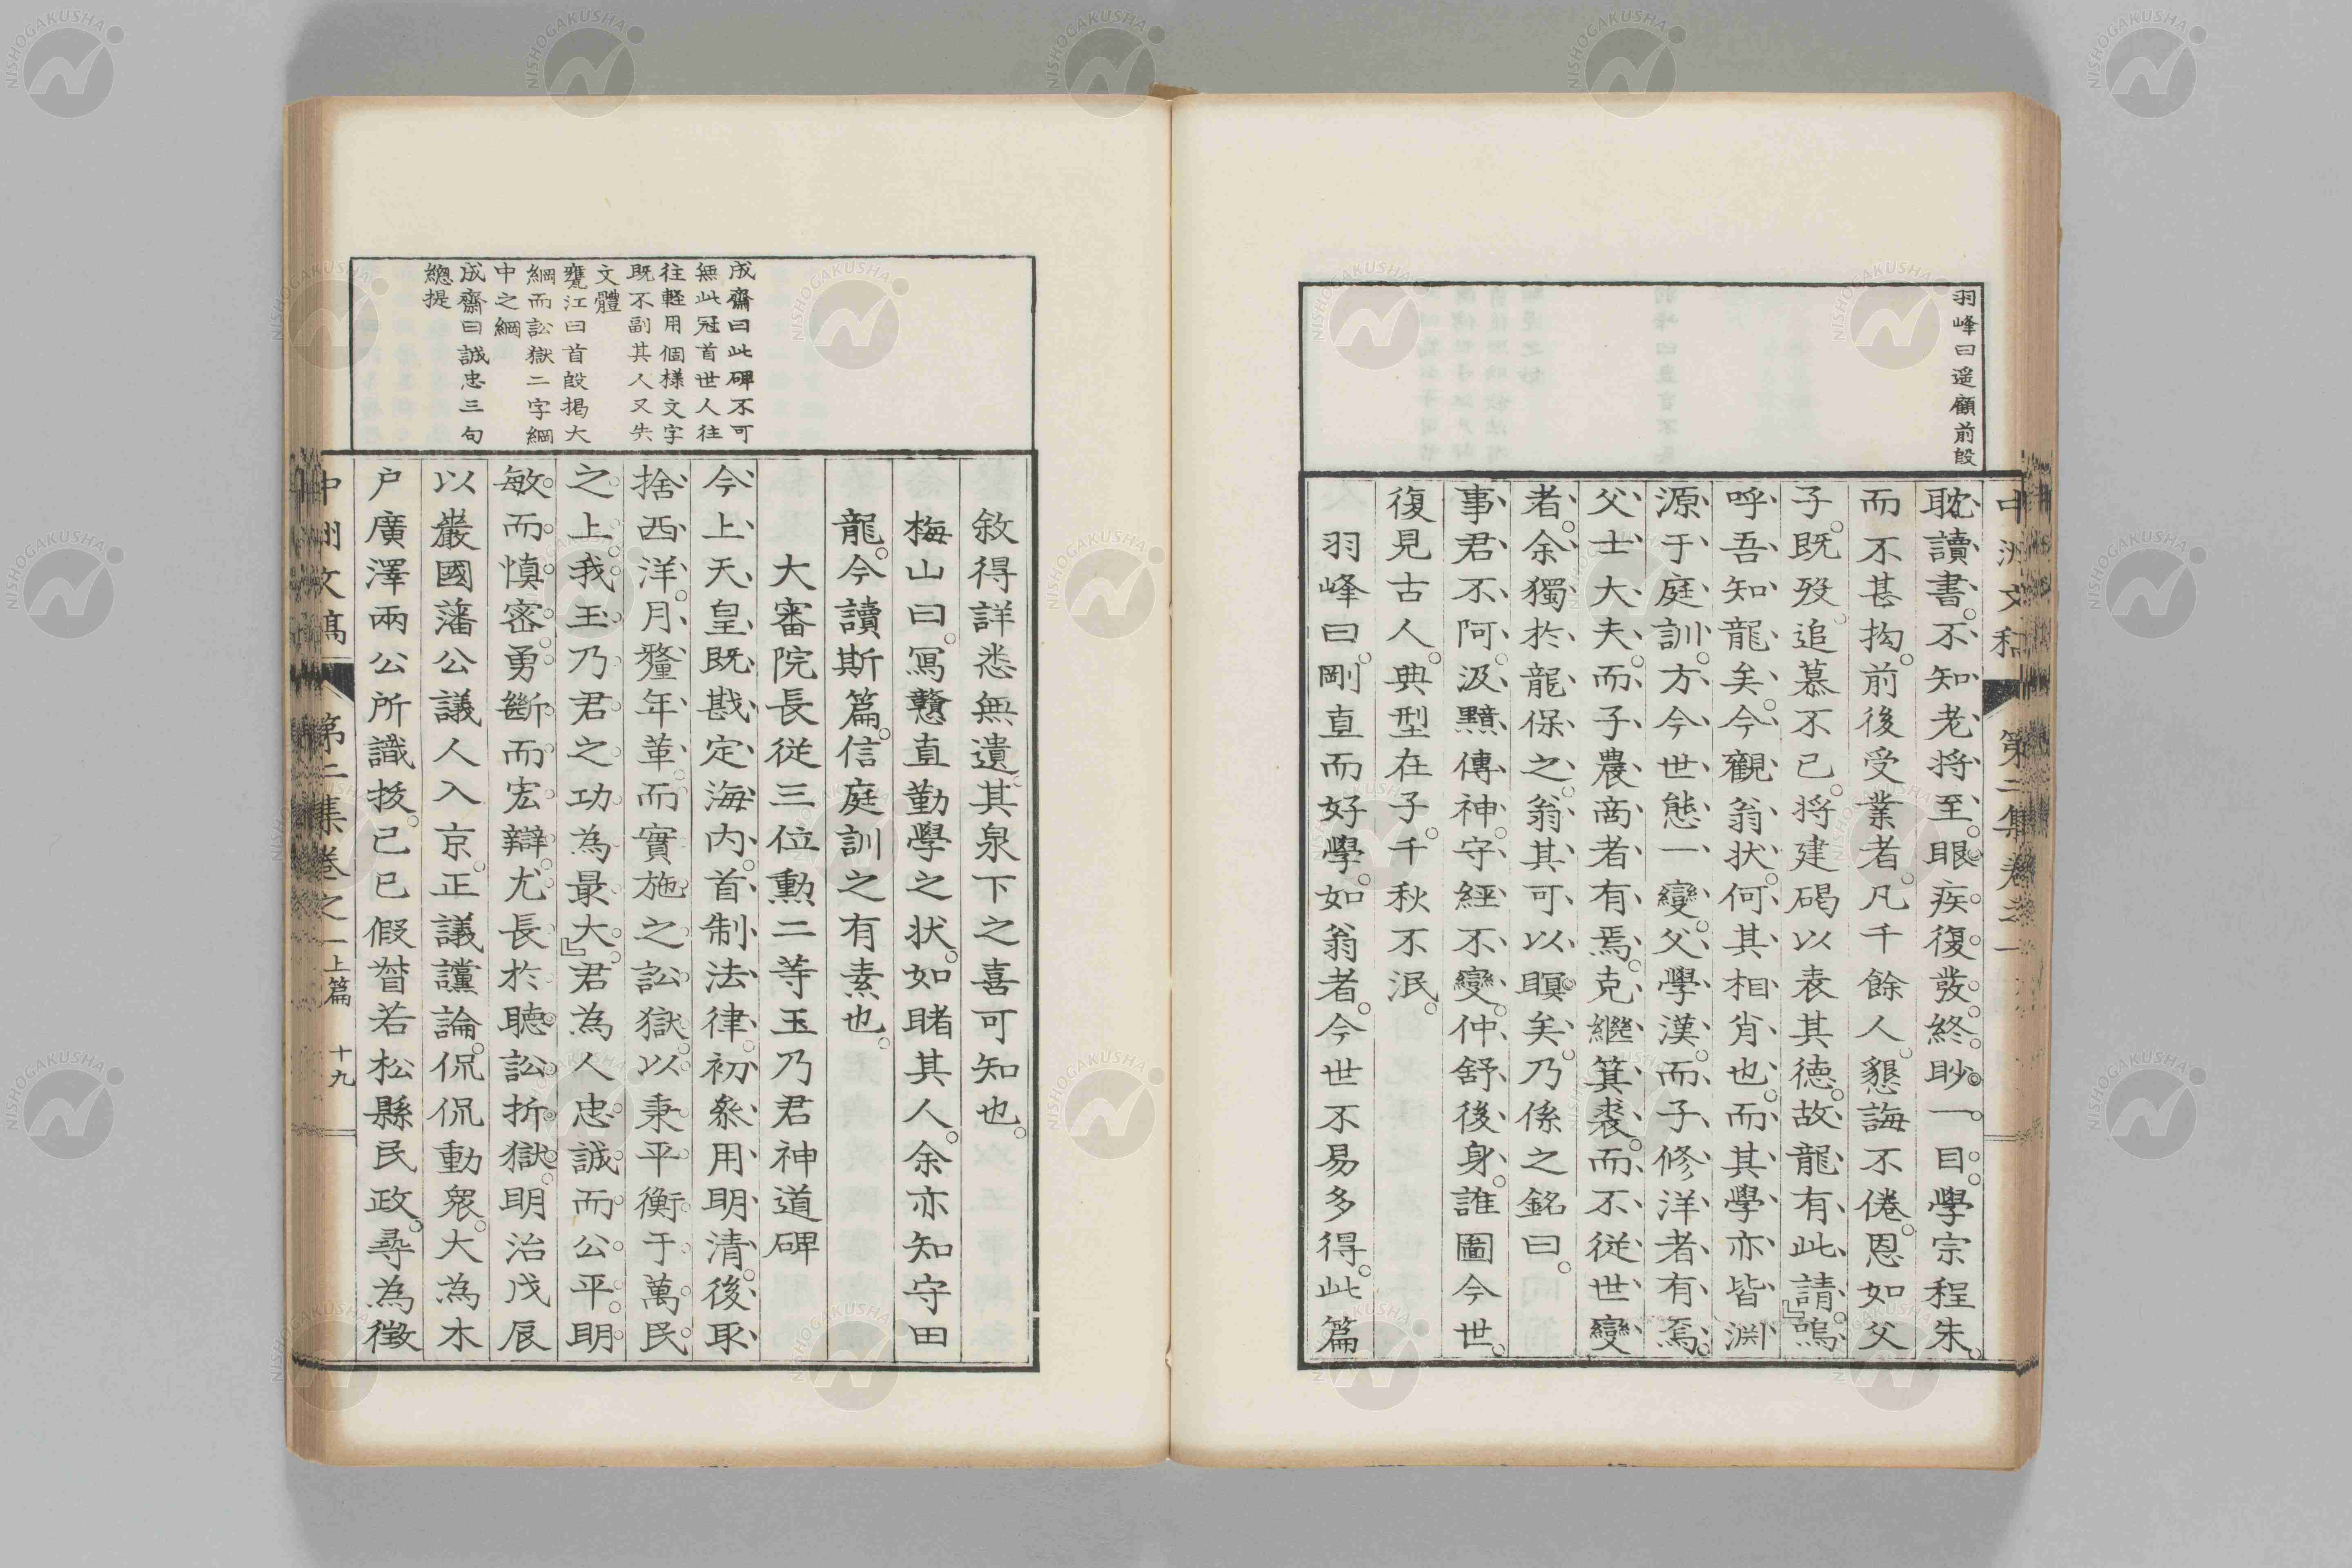 羽峰曰遥顧前段
耽讀書。不知老將至。眼疾復發。終眇一目。學宗程朱。
而不甚拘。前後受業者。凡千餘人。懇誨不倦。恩如父
子。既歿。追慕不已。將建碣以表其德。故龍有此請。』嗚
呼吾知龍矣。今觀翁狀。何其相肖也。而其學亦皆淵
源于庭訓。方今世態一變。父學漢而子修洋者有焉。
父士大夫。而子農商者有焉。克繼箕裘。而不從世變
者。余獨於龍保之。翁其可以瞑矣。乃係之銘曰。
事君不阿。汲黯傳神。守經不變。仲舒後身。誰圖今世。
復見古人。典型在子。千秋不泯。
羽峰曰。剛直而好學。如翁者。今世不易多得。此篇
中洲文稿 第二集卷之一
敘得詳悉無遺。其泉下之喜可知也。
梅山曰。寫戇直勤學之狀。如睹其人。余亦知守田
龍。今讀斯篇。信庭訓之有素也。
大審院長從三位勳二等玉乃君神道碑
今上天皇既戡定海內。首制法律。初參用明清。後取
捨西洋。月釐年革。而實施之訟獄。以秉平衡于萬民
之上。我玉乃君之功為最大。』君為人忠誠而公平。明
敏而慎密。勇斷而宏辯。尤長於聽訟折獄。明治戊辰
以巖國藩公議人入京。正議讜論。侃侃動衆。大為木
戶廣澤兩公所識拔。己巳假督若松縣民政。尋為徵
成齋曰此碑不可
無此冠首世人往
往輕用個樣文字
既不副其人又失
文體
甕江曰首段揭大
綱而訟獄二字綱
中之綱
成齋曰誠忠三句
總提
中洲文稿 第二集卷之一 上篇 十九